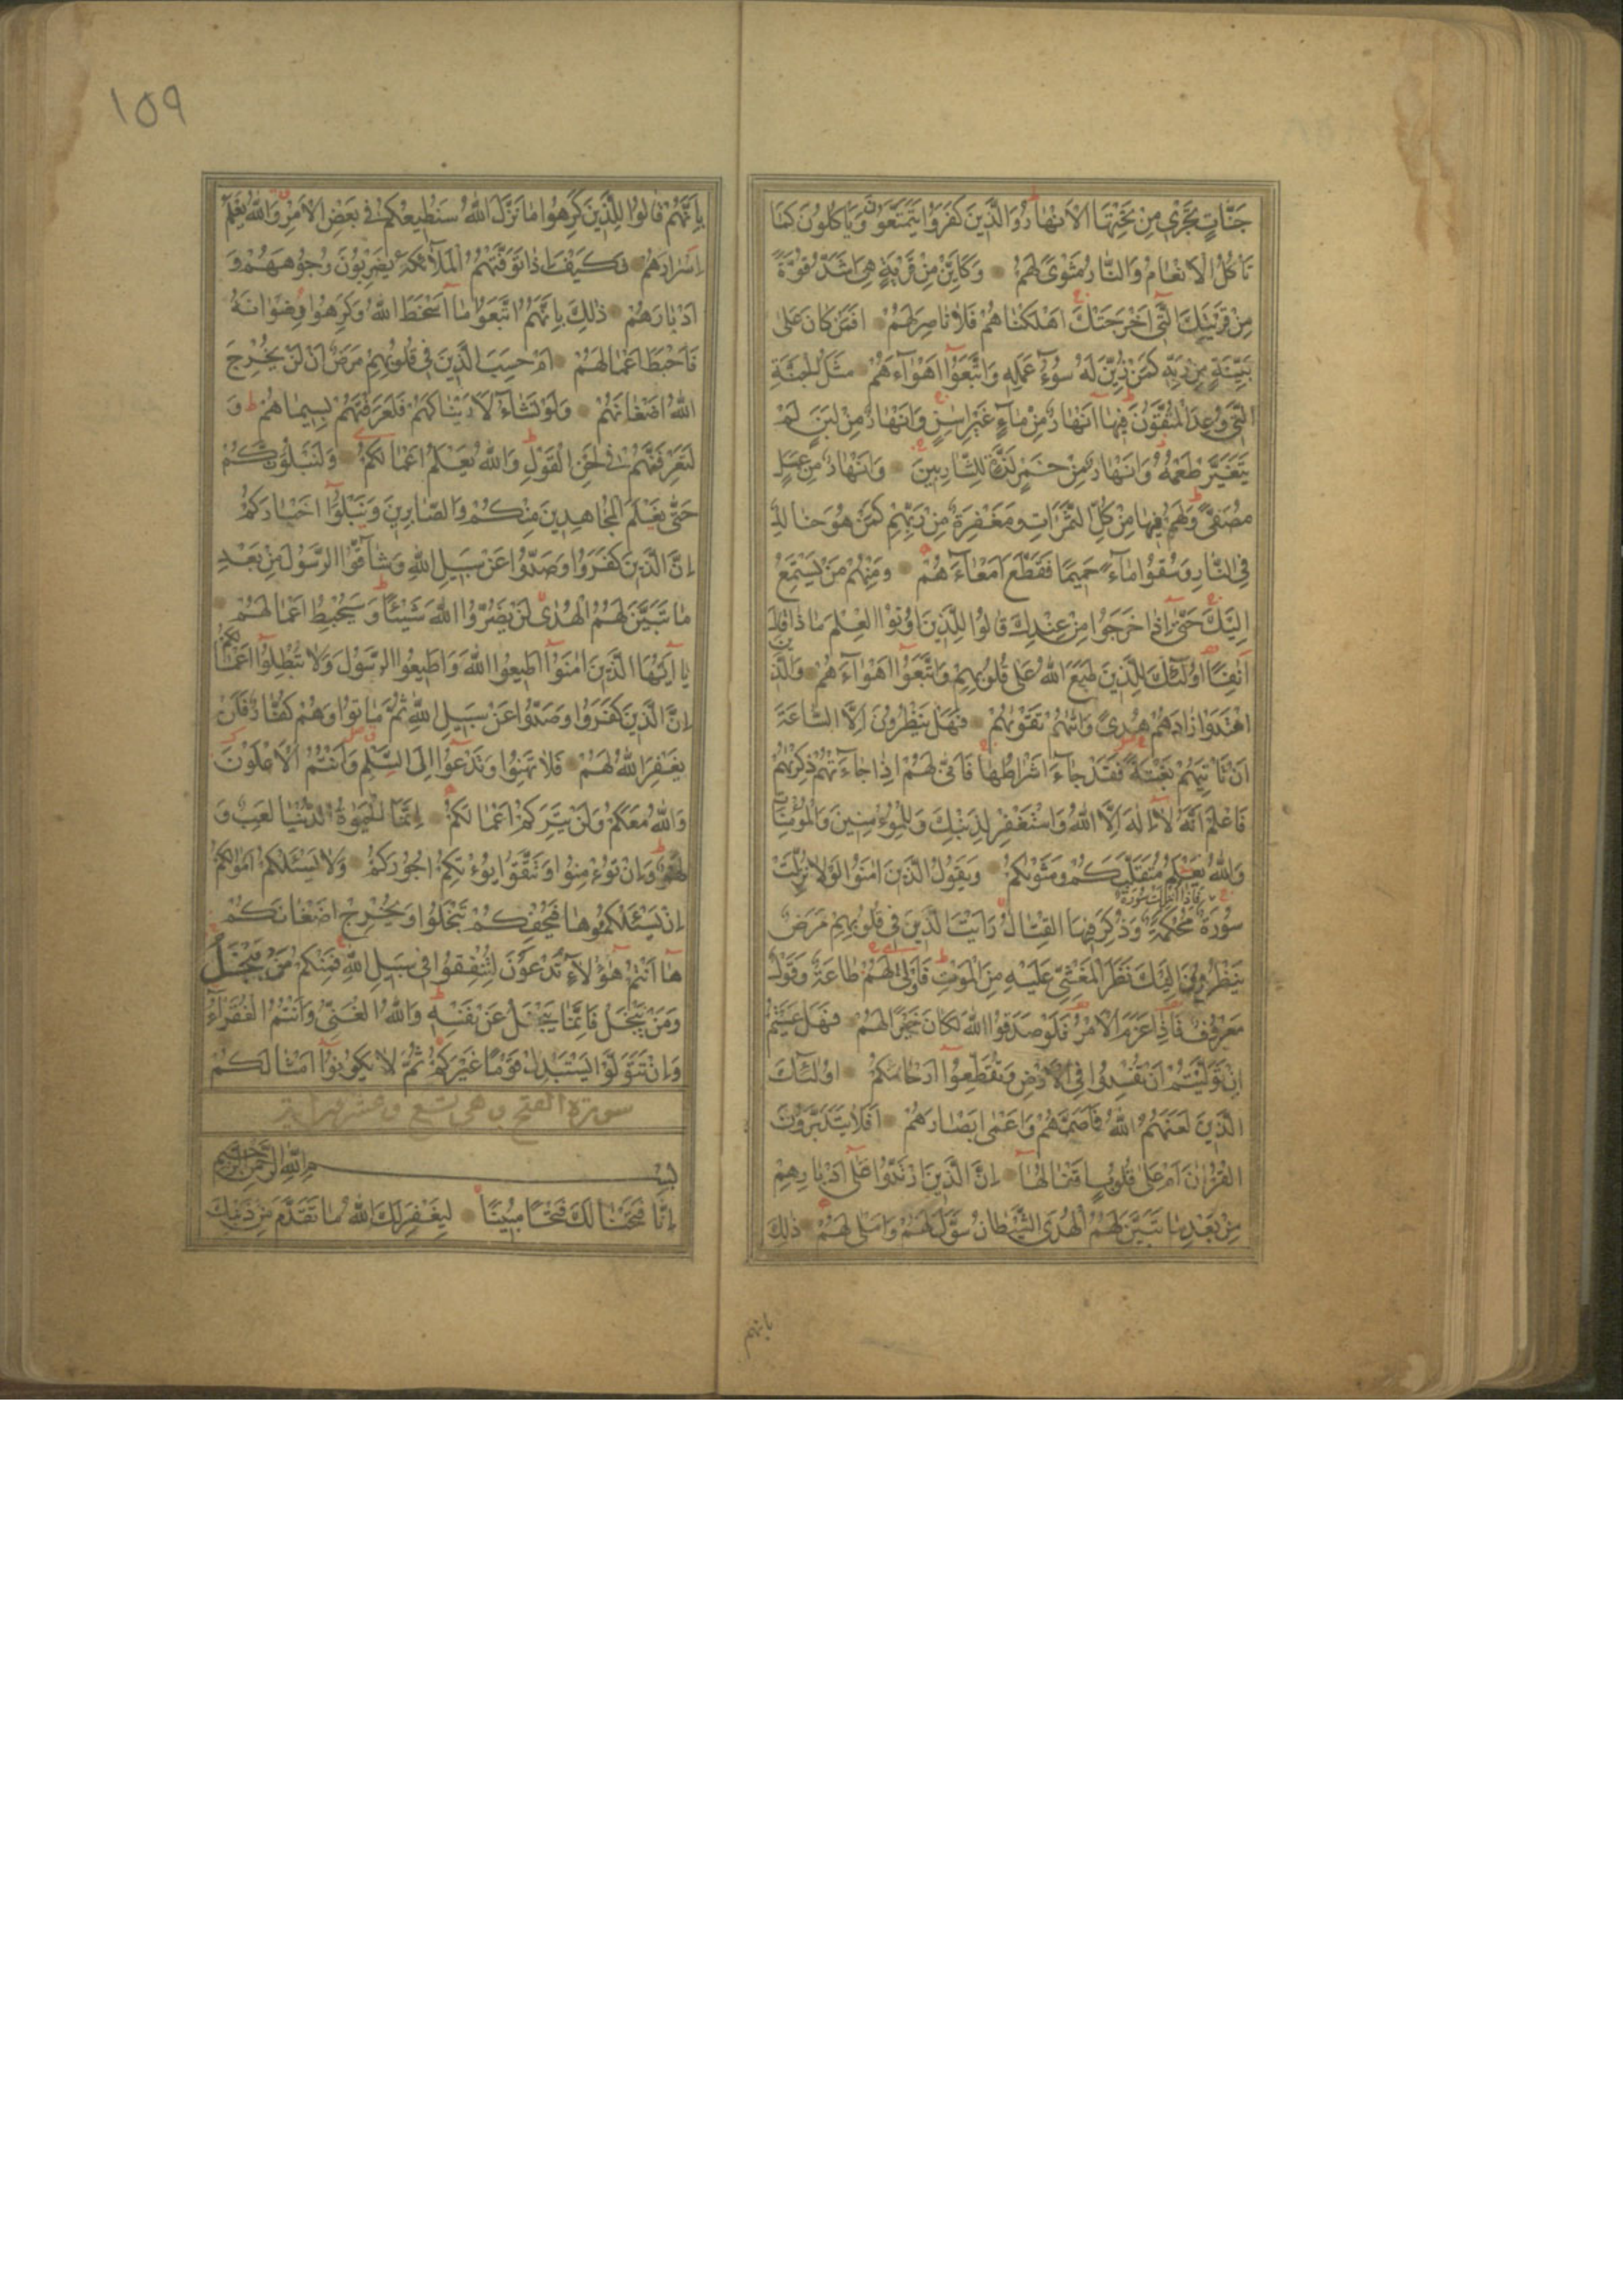 جَنَّاتٍ تَجْرِي مِنْ تَحْتِهَا الْاَنْهَارُ وَالَّذِينَ كَفَرُوا يَتَمَتَّعُونَ وَيَاْكُلُونَ كَمَا
تَاْكُلُ الْاَنْعَامُ وَالنَّارُ مَثْوًى لَهُمْ وَكَاَيِّنْ مِنْ قَرْيَةٍ هِيَ اَشَدُّ قُوَّةً
مِنْ قَرْيَتِكَ الَّتِي اَخْرَجَتْكَ اَهْلَكْنَاهُمْ فَلَا نَاصِرَ لَهُمْ اَفَمَنْ كَانَ عَلٰى
بَيِّنَةٍ مِنْ رَبِّهِ كَمَنْ زُيِّنَ لَهُ سُوٓءُ عَمَلِهِ وَاتَّبَعُوٓا اَهْوَآءَهُمْ مَثَلُ الْجَنَّةِ
الَّتِي وُعِدَ الْمُتَّقُونَ فِيهَآ اَنْهَارٌ مِنْ مَآءٍ غَيْرِ اٰسِنٍ وَاَنْهَارٌ مِنْ لَبَنٍ لَمْ
يَتَغَيَّرْ طَعْمُهُ وَاَنْهَارٌ مِنْ خَمْرٍ لَذَّةٍ لِلشَّارِبِينَ وَاَنْهَارٌ مِنْ عَسَلٍ
مُصَفًّى وَلَهُمْ فِيهَا مِنْ كُلِّ الثَّمَرَاتِ وَمَغْفِرَةٌ مِنْ رَبِّهِمْ كَمَنْ هُوَ خَالِدٌ
فِي النَّارِ وَسُقُوا مَآءً حَمِيمًا فَقَطَّعَ اَمْعَآءَهُمْ وَمِنْهُمْ مَنْ يَسْتَمِعُ
اِلَيْكَ حَتّٰىٓ اِذَا خَرَجُوا مِنْ عِنْدِكَ قَالُوا لِلَّذِينَ اُوتُوا الْعِلْمَ مَاذَا قَالَ
اٰنِفًا اُولٰٓئِكَ الَّذِينَ طَبَعَ اللّٰهُ عَلٰى قُلُوبِهِمْ وَاتَّبَعُوٓا اَهْوَآءَهُمْ وَالَّذِينَ
اهْتَدَوْا زَادَهُمْ هُدًى وَاٰتٰيهُمْ تَقْوٰيهُمْ فَهَلْ يَنْظُرُونَ اِلَّا السَّاعَةَ
اَنْ تَاْتِيَهُمْ بَغْتَةً فَقَدْ جَآءَ اَشْرَاطُهَا فَاَنّٰى لَهُمْ اِذَا جَآءَتْهُمْ ذِكْرٰيهُمْ
فَاعْلَمْ اَنَّهُ لَآ اِلٰهَ اِلَّا اللّٰهُ وَاسْتَغْفِرْ لِذَنْبِكَ وَلِلْمُؤْمِنِينَ وَالْمُؤْمِنَاتِ
وَاللّٰهُ يَعْلَمُ مُتَقَلَّبَكُمْ وَمَثْوٰيكُمْ وَيَقُولُ الَّذِينَ اٰمَنُوا لَوْلَا نُزِّلَتْ
سُورَةٌ فَاِذَآ اُنْزِلَتْ سُورَةٌ مُحْكَمَةٌ وَذُكِرَ فِيهَا الْقِتَالُ رَاَيْتَ الَّذِينَ فِي قُلُوبِهِمْ مَرَضٌ
يَنْظُرُونَ اِلَيْكَ نَظَرَ الْمَغْشِيِّ عَلَيْهِ مِنَ الْمَوْتِ فَاَوْلٰى لَهُمْ طَاعَةٌ وَقَوْلٌ
مَعْرُوفٌ فَاِذَا عَزَمَ الْاَمْرُ فَلَوْ صَدَقُوا اللّٰهَ لَكَانَ خَيْرًا لَهُمْ فَهَلْ عَسَيْتُمْ
اِنْ تَوَلَّيْتُمْ اَنْ تُفْسِدُوا فِي الْاَرْضِ وَتُقَطِّعُوٓا اَرْحَامَكُمْ اُولٰٓئِكَ
الَّذِينَ لَعَنَهُمُ اللّٰهُ فَاَصَمَّهُمْ وَاَعْمٰٓى اَبْصَارَهُمْ اَفَلَا يَتَدَبَّرُونَ
الْقُرْاٰنَ اَمْ عَلٰى قُلُوبٍ اَقْفَالُهَا اِنَّ الَّذِينَ ارْتَدُّوا عَلٰٓى اَدْبَارِهِمْ
مِنْ بَعْدِ مَا تَبَيَّنَ لَهُمُ الْهُدَى الشَّيْطَانُ سَوَّلَ لَهُمْ وَاَمْلٰى لَهُمْ ذٰلِكَ
١٥٩
بِاَنَّهُمْ قَالُوا لِلَّذِينَ كَرِهُوا مَا نَزَّلَ اللّٰهُ سَنُطِيعُكُمْ فِي بَعْضِ الْاَمْرِ وَاللّٰهُ يَعْلَمُ
اِسْرَارَهُمْ فَكَيْفَ اِذَا تَوَفَّتْهُمُ الْمَلٰٓئِكَةُ يَضْرِبُونَ وُجُوهَهُمْ وَ
اَدْبَارَهُمْ ذٰلِكَ بِاَنَّهُمُ اتَّبَعُوا مَآ اَسْخَطَ اللّٰهَ وَكَرِهُوا رِضْوَانَهُ
فَاَحْبَطَ اَعْمَالَهُمْ اَمْ حَسِبَ الَّذِينَ فِي قُلُوبِهِمْ مَرَضٌ اَنْ لَنْ يُخْرِجَ
اللّٰهُ اَضْغَانَهُمْ وَلَوْ نَشَآءُ لَاَرَيْنَاكَهُمْ فَلَعَرَفْتَهُمْ بِسِيمَاهُمْ وَ
لَتَعْرِفَنَّهُمْ فِي لَحْنِ الْقَوْلِ وَاللّٰهُ يَعْلَمُ اَعْمَالَكُمْ وَلَنَبْلُوَنَّكُمْ
حَتّٰى نَعْلَمَ الْمُجَاهِدِينَ مِنْكُمْ وَالصَّابِرِينَ وَنَبْلُوَا اَخْبَارَكُمْ
اِنَّ الَّذِينَ كَفَرُوا وَصَدُّوا عَنْ سَبِيلِ اللّٰهِ وَشَآقُّوا الرَّسُولَ مِنْ بَعْدِ
مَا تَبَيَّنَ لَهُمُ الْهُدٰى لَنْ يَضُرُّوا اللّٰهَ شَيْئًا وَسَيُحْبِطُ اَعْمَالَهُمْ
يَآ اَيُّهَا الَّذِينَ اٰمَنُوٓا اَطِيعُوا اللّٰهَ وَاَطِيعُوا الرَّسُولَ وَلَا تُبْطِلُوٓا اَعْمَالَكُمْ
اِنَّ الَّذِينَ كَفَرُوا وَصَدُّوا عَنْ سَبِيلِ اللّٰهِ ثُمَّ مَاتُوا وَهُمْ كُفَّارٌ فَلَنْ
يَغْفِرَ اللّٰهُ لَهُمْ فَلَا تَهِنُوا وَتَدْعُوٓا اِلَى السَّلْمِ وَاَنْتُمُ الْاَعْلَوْنَ
وَاللّٰهُ مَعَكُمْ وَلَنْ يَتِرَكُمْ اَعْمَالَكُمْ اِنَّمَا الْحَيٰوةُ الدُّنْيَا لَعِبٌ وَ
لَهْوٌ وَاِنْ تُؤْمِنُوا وَتَتَّقُوا يُؤْتِكُمْ اُجُورَكُمْ وَلَا يَسْئَلْكُمْ اَمْوَالَكُمْ
اِنْ يَسْئَلْكُمُوهَا فَيُحْفِكُمْ تَبْخَلُوا وَيُخْرِجْ اَضْغَانَكُمْ
هَآ اَنْتُمْ هٰٓؤُلَآءِ تُدْعَوْنَ لِتُنْفِقُوا فِي سَبِيلِ اللّٰهِ فَمِنْكُمْ مَنْ يَبْخَلُ
وَمَنْ يَبْخَلْ فَاِنَّمَا يَبْخَلُ عَنْ نَفْسِهِ وَاللّٰهُ الْغَنِيُّ وَاَنْتُمُ الْفُقَرَآءُ
وَاِنْ تَتَوَلَّوْا يَسْتَبْدِلْ قَوْمًا غَيْرَكُمْ ثُمَّ لَا يَكُونُوٓا اَمْثَالَكُمْ
سورة الفتح وهي تسع وعشرون آية
بِسْمِ اللّٰهِ الرَّحْمٰنِ الرَّحِيمِ
اِنَّا فَتَحْنَا لَكَ فَتْحًا مُبِينًا لِيَغْفِرَ لَكَ اللّٰهُ مَا تَقَدَّمَ مِنْ ذَنْبِكَ